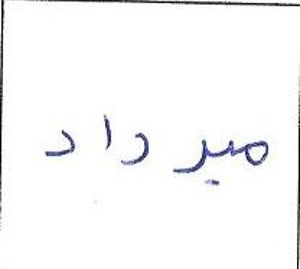 میر داد